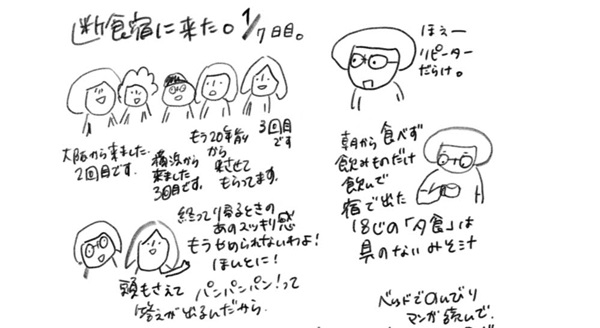 断食宿に来た。1/7日目。
大阪から来ました
2回目です。
横浜から
来ました
3回目です。
もう20年前
から
来させて
もらってます。
3回目
です
終って帰るときの
あのスッキリ感
もうやめられないわよ!
ほんとに!
頭もさえて パンパンパン!って
答えが出るんだから
ほぇー
リピーター
だらけ。
朝から食べず
飲みものだけ
飲んで
宿で出た
18じの「夕食」は
具のないみそ汁
ベッドでのんびり
マンガ読んで、